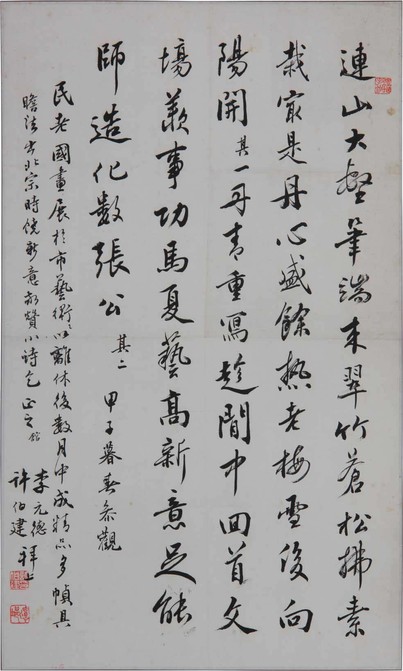 連山大壑筆端来翠竹蒼松拂素
栽最是丹心盛餘熱老梅雪後向
陽開 其一 丹青重寫趁閒中回首文
場羨事功馬夏藝高新意足能
師造化數張公 其二 甲子暮春参觀
民老國畫展於市藝術以離休後數月中成精品多幀具
瞻法出北宗時饒新意敬贊小詩乞正之 館
李元德
許伯建 拜上